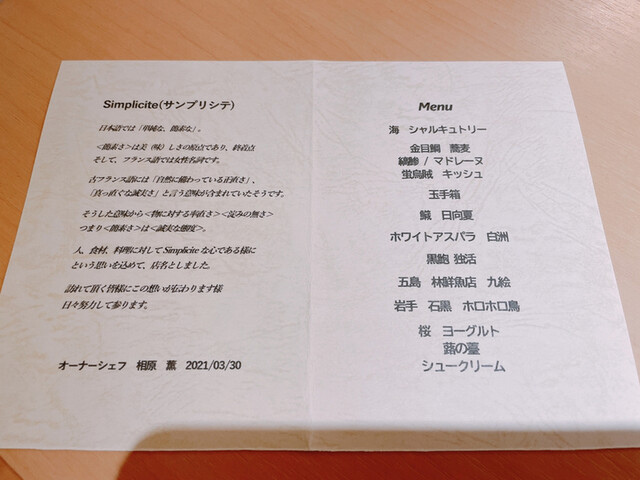 Simplicite(サンプリシテ)
日本語では「単純な、簡素な」。
<簡素さ>は美(味)しさの原点であり、終着点
そして、フランス語では女性名詞です。
古フランス語には「自然に備わっている正直さ」、
「真っ直ぐな誠実さ」と言う意味が含まれていたそうです。
そうした意味から<物に対する率直さ><淀みの無さ>
つまり<簡素さ>は<誠実な態度>。
人、食材、料理に対してSimpliciteな心である様に
という思いを込めて、店名としました。
訪れて頂く皆様にこの想いが伝わります様
日々努力して参ります。
オーナーシェフ 相原 薫 2021/03/30
Menu
海 シャルキュトリー
金目鯛 蕎麦
縞鯵 / マドレーヌ
蛍烏賊 キッシュ
玉手箱
鱵 日向夏
ホワイトアスパラ 白洲
黒鮑 独活
五島 林鮮魚店 九絵
岩手 石黒 ホロホロ鳥
桜 ヨーグルト
蕗の薹
シュークリーム